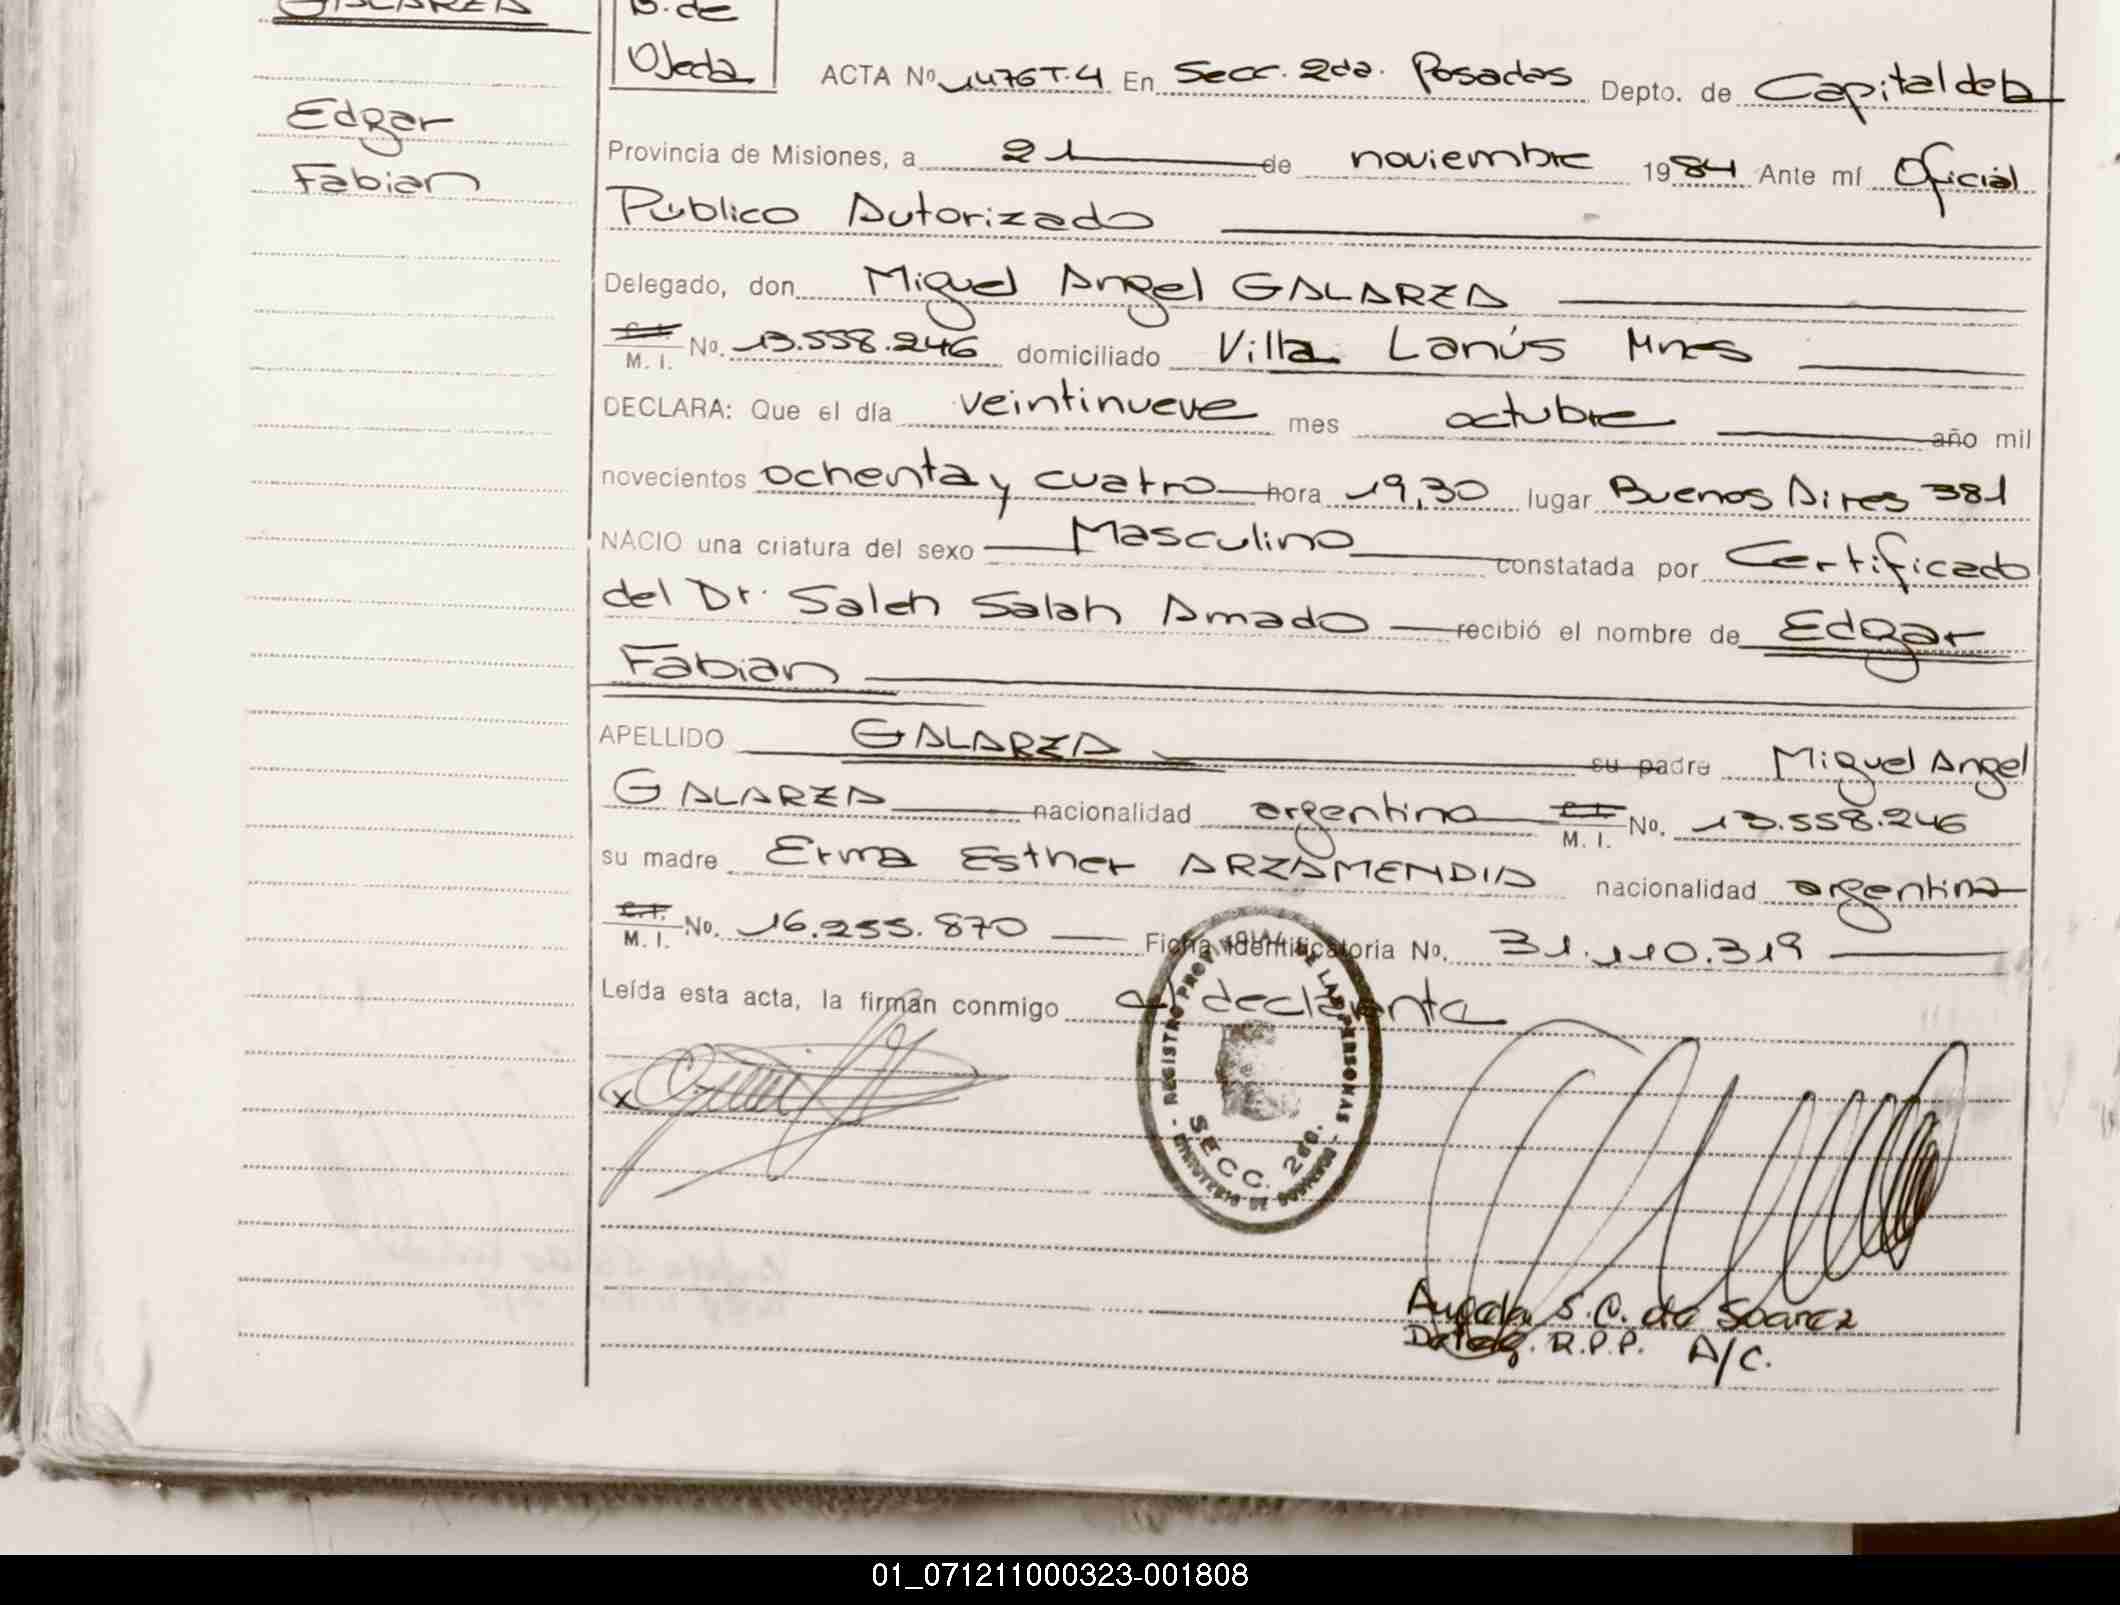 GALARZA
Edgar
Fabian
B. de
Ojeda
ACTA No. 1476 T.4 En Secc. 2da. Posadas Depto. de Capital de la
Provincia de Misiones, a 21 de noviembre 1984 Ante mí Oficial
Público Autorizado
Delegado, don Miguel Angel GALARZA
C.I.
M. I. No. 13.558.246 domiciliado Villa Lanús Mnes
DECLARA: Que el día veintinueve mes octubre año mil
novecientos ochenta y cuatro hora 19,30 lugar Buenos Aires 381
NACIO una criatura del sexo Masculino constatada por Certificado
del Dr. Saleh Salah Amado recibió el nombre de Edgar
Fabian
APELLIDO GALARZA su padre Miguel Angel
GALARZA nacionalidad argentina C.I.
M. I. No. 13.558.246
su madre Erma Esther ARZAMENDIA nacionalidad argentina
C.I.
M. I. No. 16.255.870 Ficha Identificatoria No. 31.110.319
Leída esta acta, la firman conmigo el declarante
x
REGISTRO PROV. DE LAS PERSONAS
SECC. 2da.
MINISTERIO DE GOBIERNO
S. C. de Soarez
Deleg. R.P.P. A/C.
01_071211000323-001808